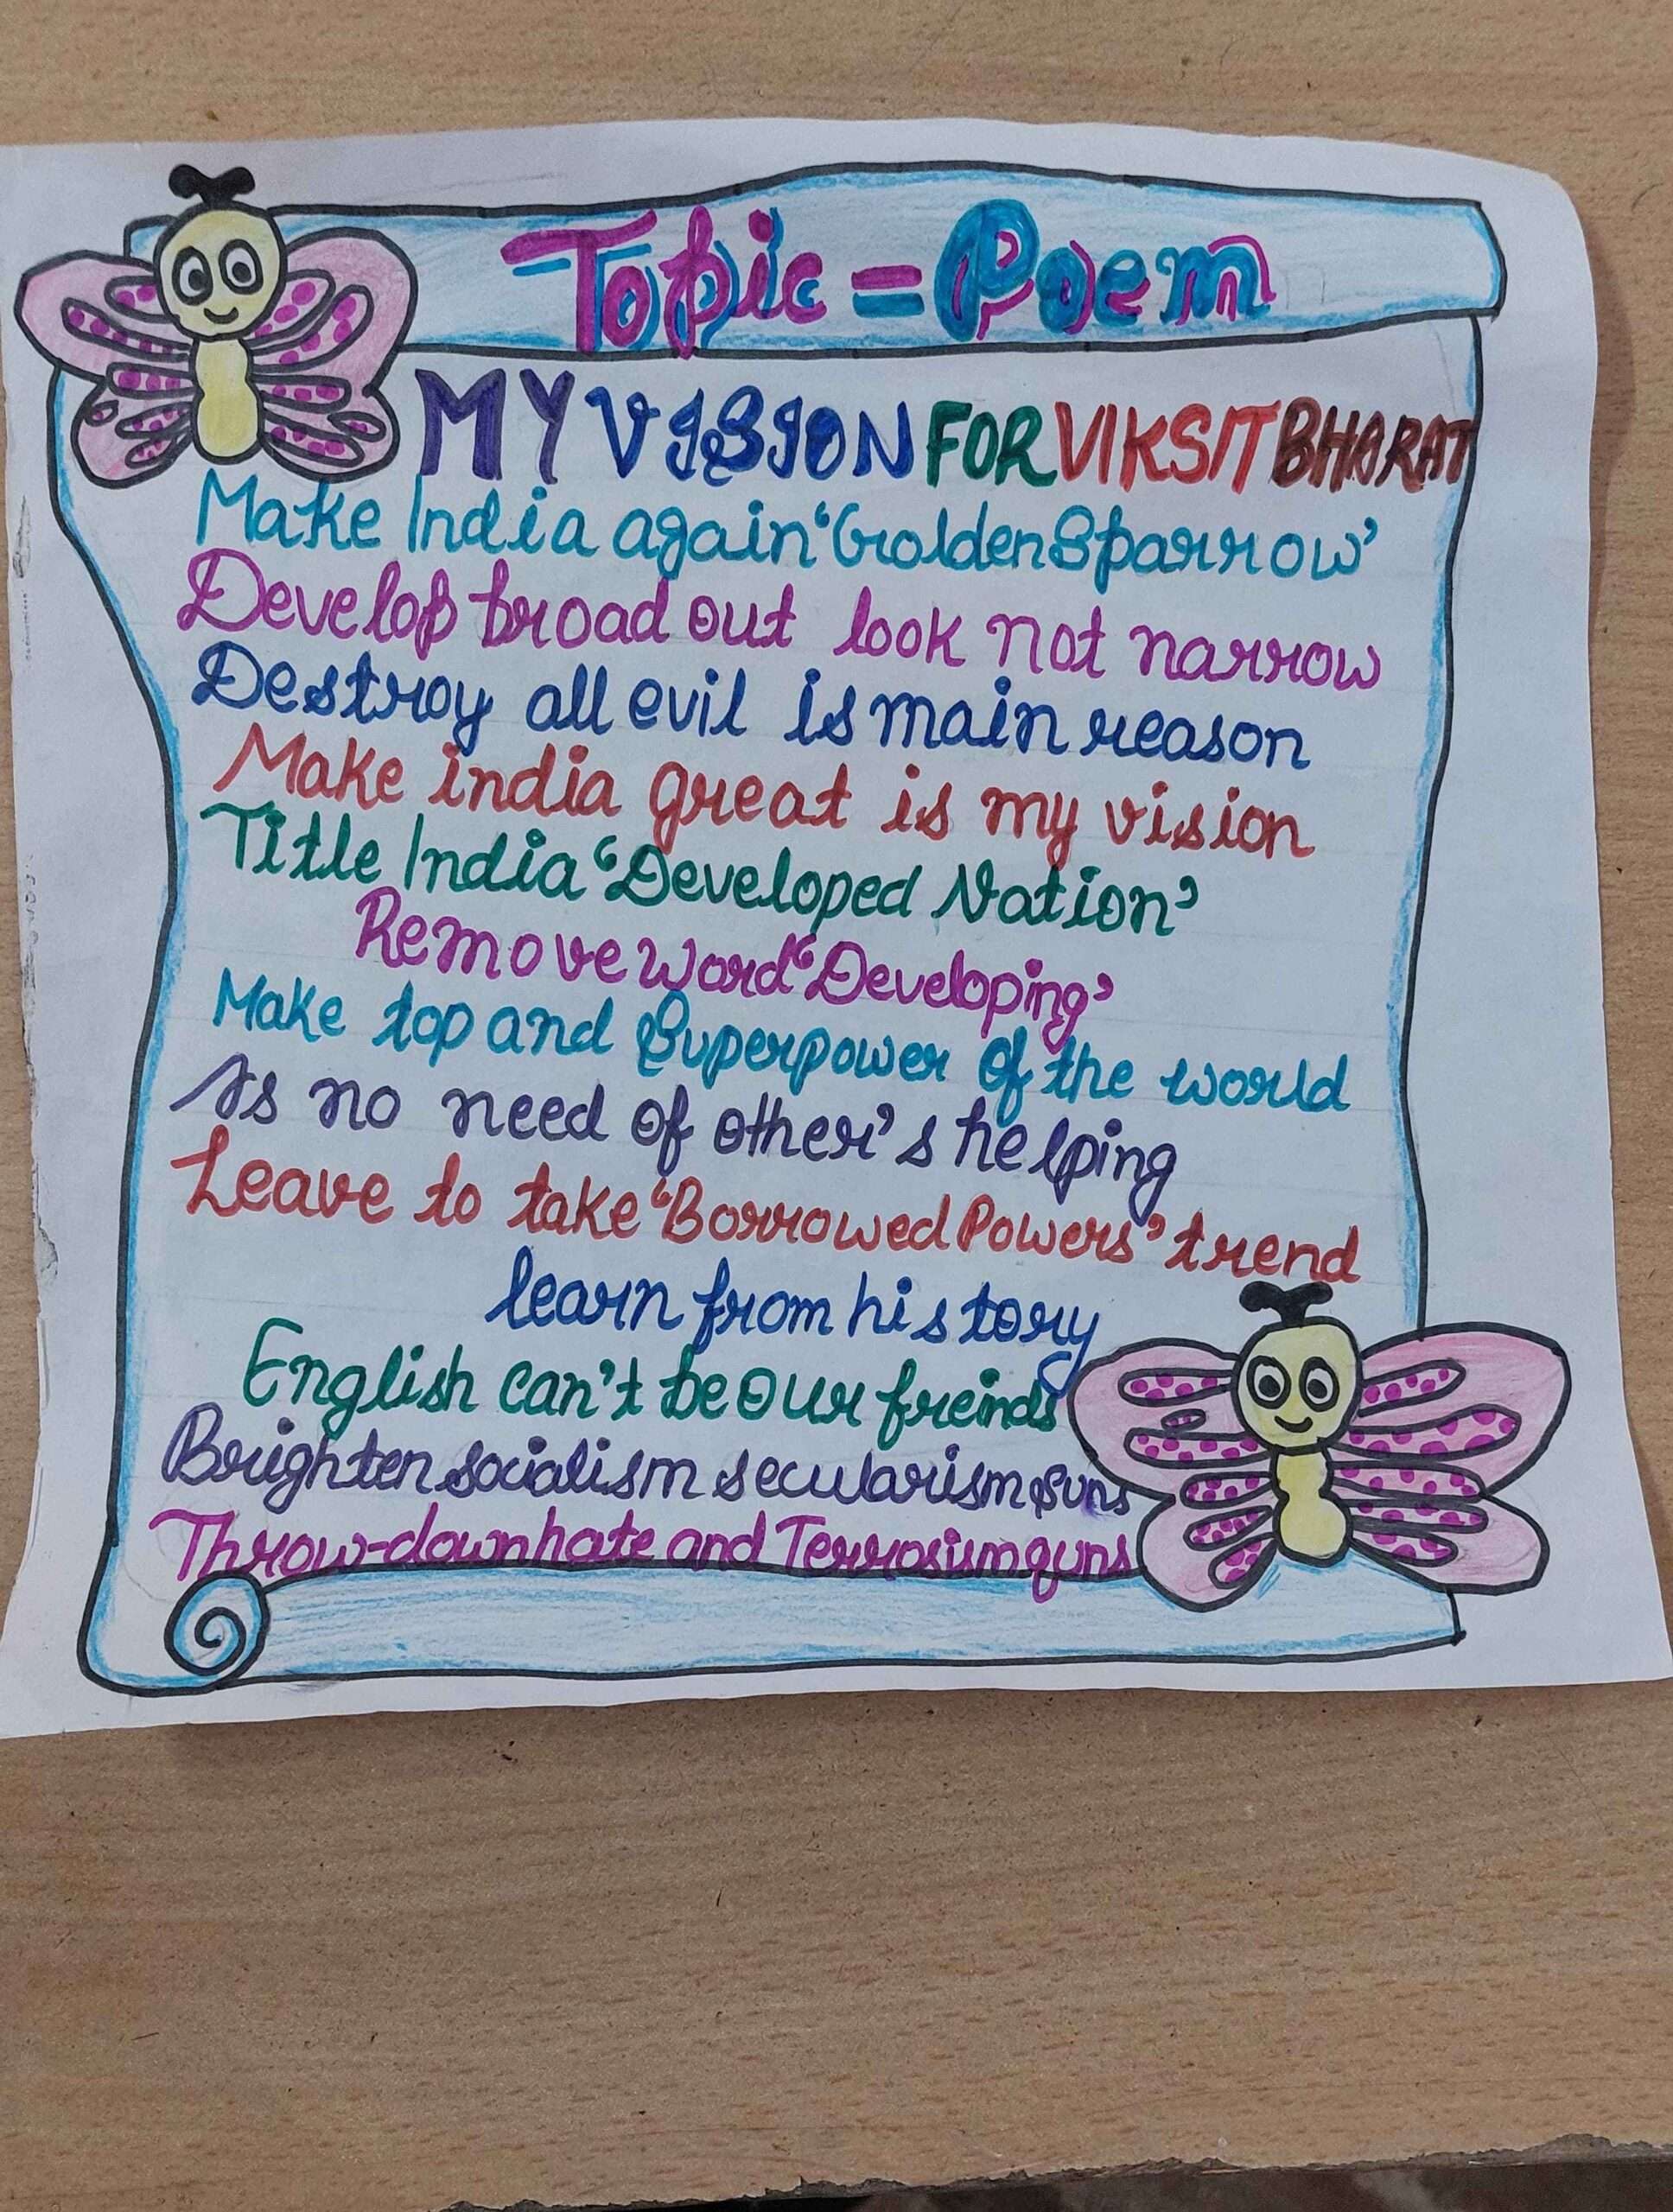 Topic = Poem
MY VISION FOR VIKSIT BHARAT
Make India again 'Golden Sparrow'
Develop broad out look not narrow
Destroy all evil is main reason
Make india great is my vision
Title India 'Developed Nation'
Remove word 'Developing'
Make top and Superpower of the world
As no need of other's helping
Leave to take 'Borrowed Powers' trend
learn from history
English can't be our freinds
Brighten socialism secularism suns
Throw-down hate and Terrosism guns